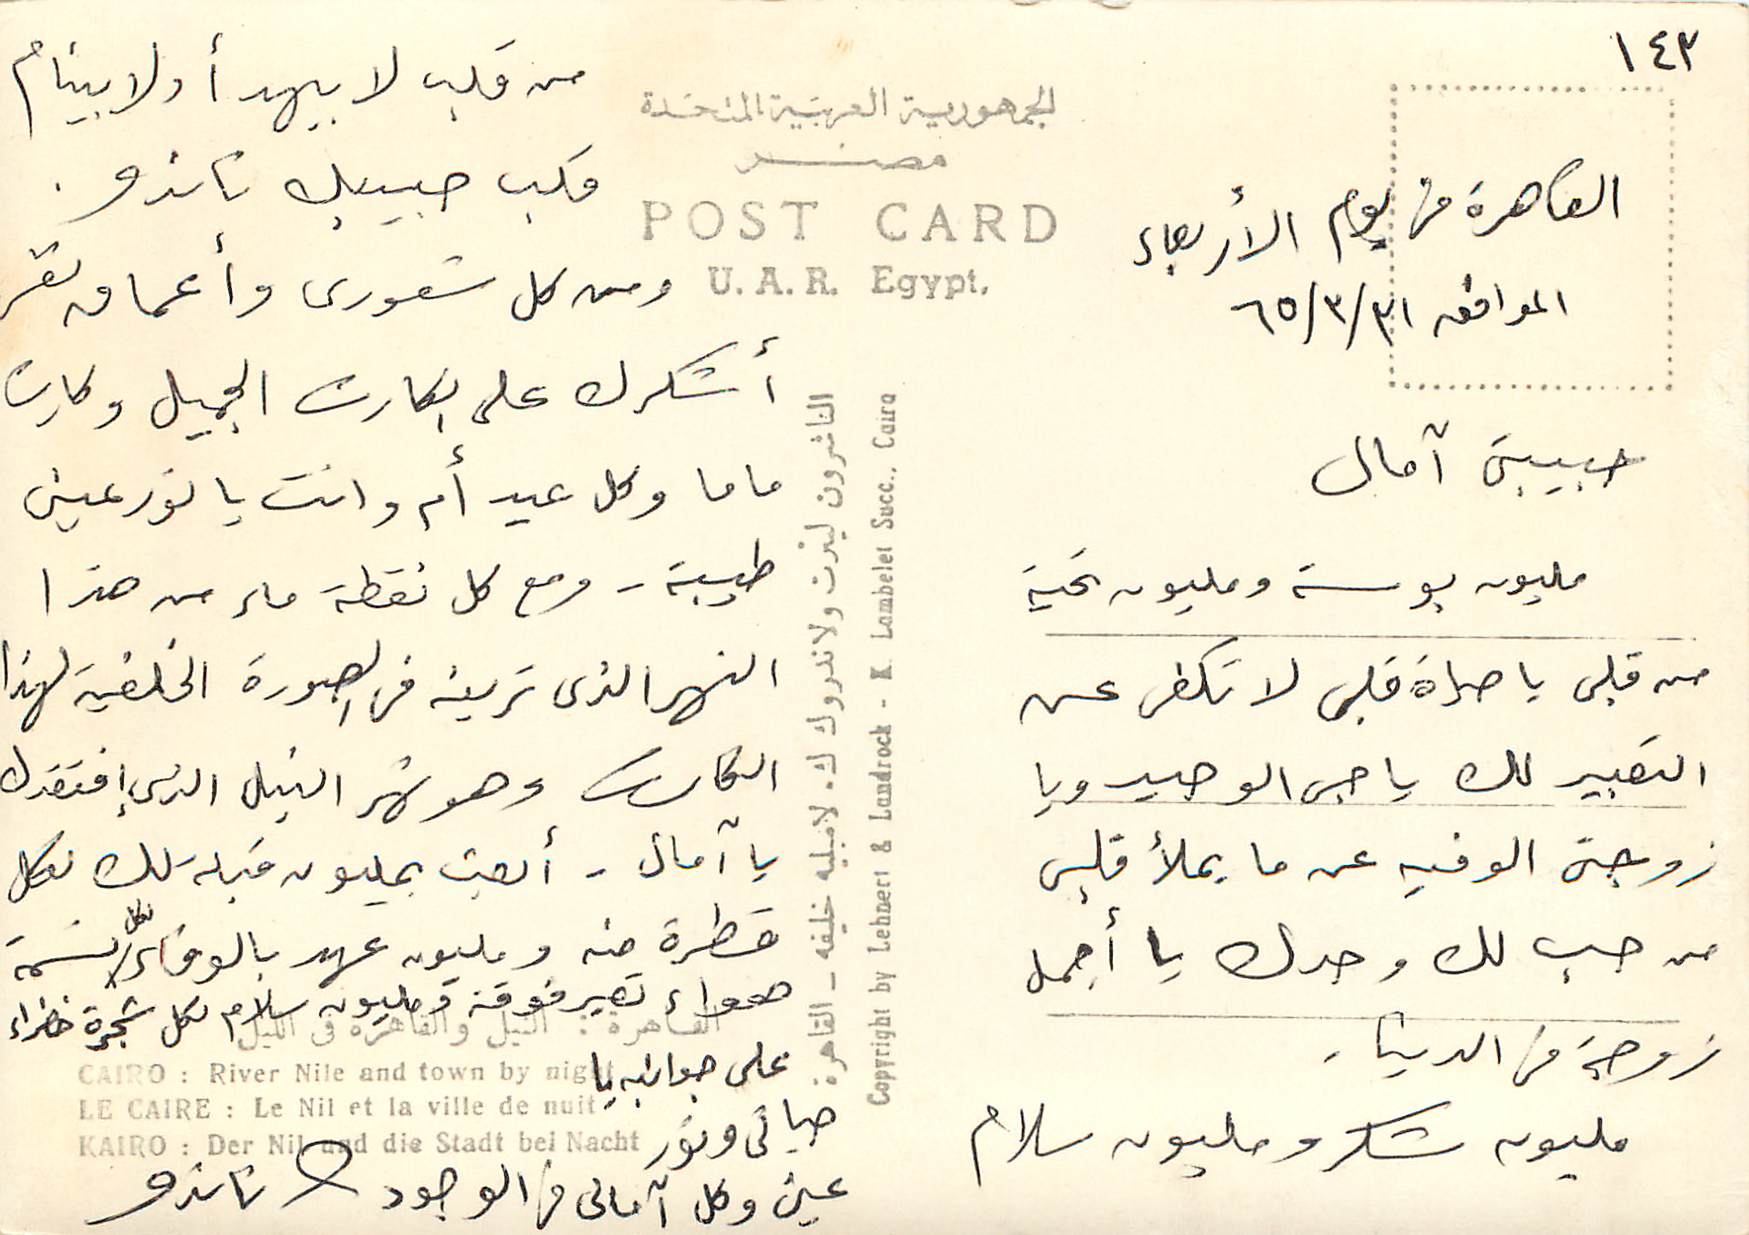 ١٤٢
القاهرة فى يوم الأربعاء
الموافق ٣١/٣/٦٥
حبيبتى آمال
مليون بوسة ومليون تحية
من قلبى يا حياة قلبى لا تكفى عن
التعبير لك يا حبى الوحيد ويا
زوجتى الوفيه عن ما يملأ قلبى
من حب لك وحدك يا أجمل
زوجة فى الدنيا -
مليون شكر ومليون سلام
من قلب لا بيهدأ ولا بينام
قلب حبيبك ناندو .
ومن كل شعورى وأعماق
أشكرك على الكارت الجميل وكارت
ماما وكل عيد أم وانت يا نور عينى
طيبة - ومع كل نقطة ماء من هذا
النهر الذى ترينه فى الصورة الخلفية لهذا
الكارت وهو نهر النيل الذى إفتقدك
يا آمال - أبعث بمليون قبلة لك لكل
قطرة منه ومليون عهد بالوفاء لكل نسمة
هواء تعبر فوقه ومليون سلام لكل شجرة خضراء
على جوانبه يا
حياتى ونور
عينى وكل آمالى فى الوجود ناندو
الجمهورية العربية المتحدة
مصر
POST CARD
U. A. R. Egypt.
الناشرون لينرت ولاندروك ك. لامبليه خليفه - القاهرة
Copyright by Lehnert & Landrock - K. Lambelet Succ., Cairo
القاهرة : النيل والقاهرة فى الليل
CAIRO : River Nile and town by night
LE CAIRE : Le Nil et la ville de nuit
KAIRO : Der Nil und die Stadt bei Nacht